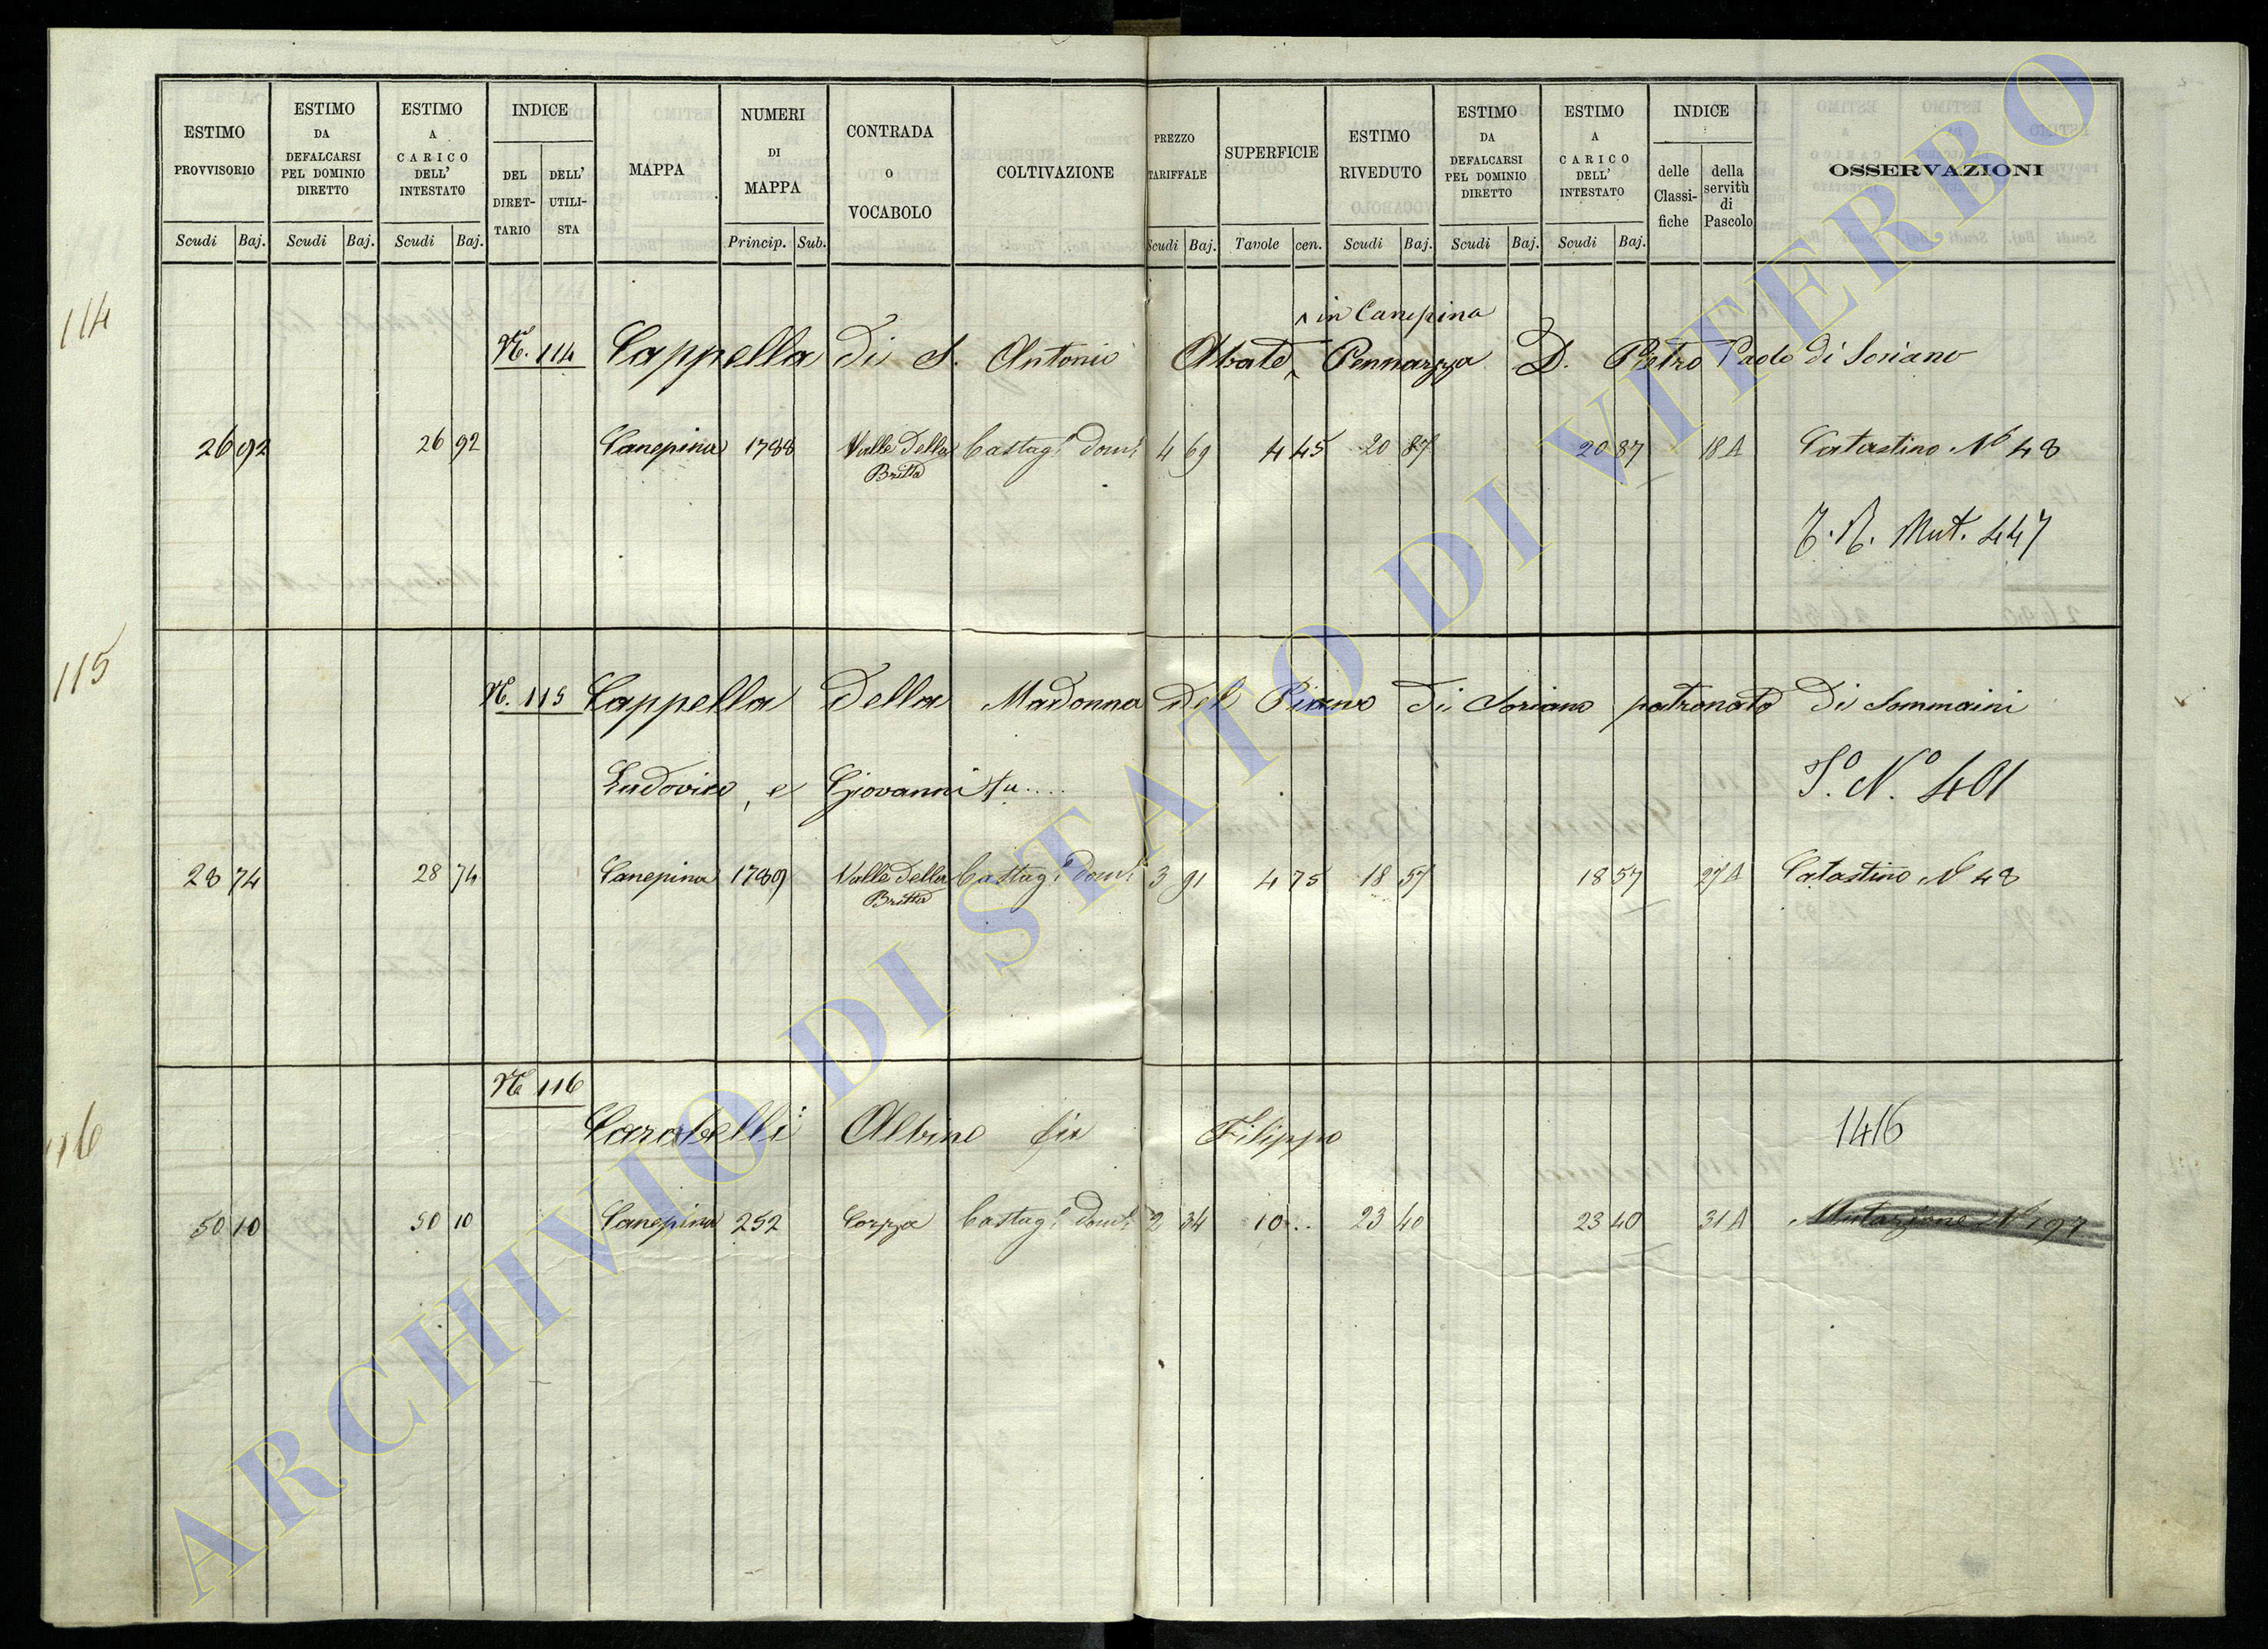 ESTIMO PROVVISORIO
ESTIMO DA DEFALCARSI PEL DOMINIO DIRETTO
ESTIMO A CARICO DELL' INTESTATO
INDICE
DEL DIRET- TARIO
DELL' UTILI- STA
MAPPA
NUMERI DI MAPPA
CONTRADA O VOCABOLO
COLTIVAZIONE
PREZZO TARIFFALE
SUPERFICIE
ESTIMO RIVEDUTO
ESTIMO DA DEFALCARSI PEL DOMINIO DIRETTO
ESTIMO A CARICO DELL' INTESTATO
INDICE
delle Classi- fiche
della servitù di Pascolo
OSSERVAZIONI
Scudi Baj. Scudi Baj. Scudi Baj. Princip. Sub. Scudi Baj. Tavole cen. Scudi Baj. Scudi Baj. Scudi Baj.
114
in Canepina
N. 114 Cappella di S. Antonio Abate Pennazza D. Pietro Paolo di Soriano
26 92 26 92 Canepina 1788 Valle della Britta Castag.i dom.i 4 69 4 45 20 87 20 87 18 A Catastino N.o 48
Mut. 447
115
N. 115 Cappella della Madonna del Piano di Soriano patronato di Sommaini
Ludovico, e Giovanni fu....
S.o N.o 401
28 74 28 74 Canepina 1789 Valle della Britta Castag.i dom.i 3 91 4 75 18 57 18 57 27 A Catastino N 48
116
N. 116
Carabelli Albino fu Filippo
1416
50 10 50 10 Canepina 252 Cozza Castag.i dom.i 2 34 10 .. 23 40 23 40 31 A Mutazione N.o 197
ARCHIVIO DI STATO DI VITERBO